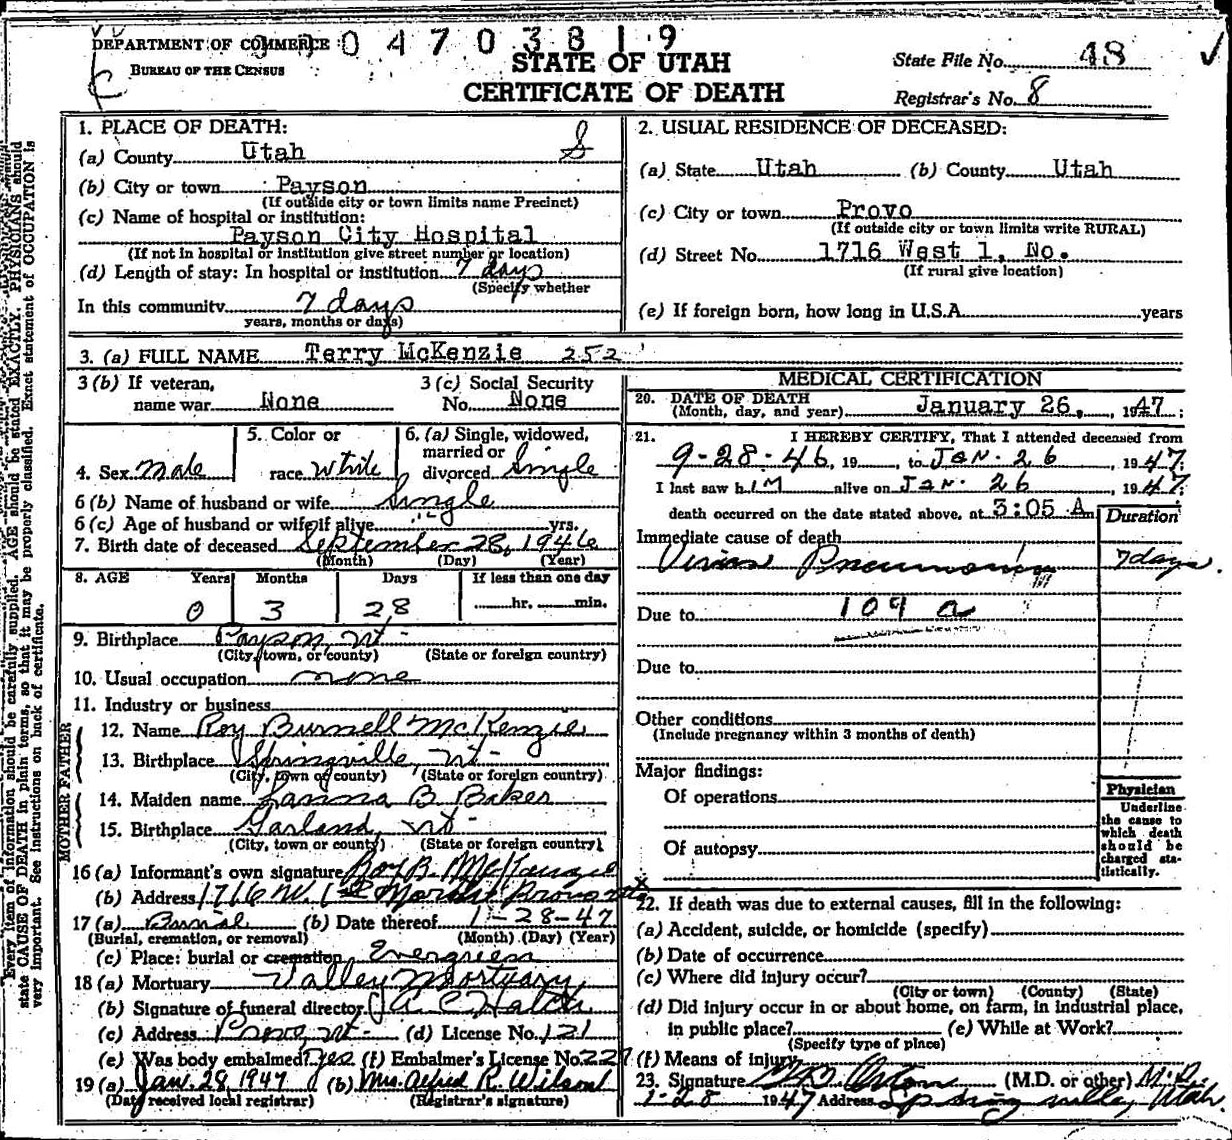 DEPARTMENT OF COMMERCE 0 4 7 0 3 8 1 9
BUREAU OF THE CENSUS
STATE OF UTAH
CERTIFICATE OF DEATH
State File No. 48
Registrar's No. 8
1. PLACE OF DEATH:
(a) County Utah
(b) City or town Payson
(If outside city or town limits name Precinct)
(c) Name of hospital or institution:
Payson City Hospital
(If not in hospital or institution give street number or location)
(d) Length of stay: In hospital or institution 7 days
(Specify whether
In this community 7 days
years, months or days)
2. USUAL RESIDENCE OF DECEASED:
(a) State Utah (b) County Utah
(c) City or town Provo
(If outside city or town limits write RURAL)
(d) Street No. 1716 West 1. No.
(If rural give location)
(e) If foreign born, how long in U.S.A. years
3. (a) FULL NAME Terry McKenzie 252
3 (b) If veteran,
name war None
3 (c) Social Security
No. None
4. Sex Male
5. Color or
race White
6. (a) Single, widowed,
married or
divorced Single
6 (b) Name of husband or wife Single
6 (c) Age of husband or wife if alive yrs.
7. Birth date of deceased September 28, 1946
(Month) (Day) (Year)
8. AGE Years Months Days If less than one day
0 3 28 hr. min.
9. Birthplace Payson, Ut-
(City, town, or county) (State or foreign country)
10. Usual occupation none
11. Industry or business
FATHER
12. Name Roy Burnell McKenzie
13. Birthplace Springville, Ut-
(City, town or county) (State or foreign country)
MOTHER
14. Maiden name B Baker
15. Birthplace Garland, Ut-
(City, town or county) (State or foreign country)
16 (a) Informant's own signature Roy B. McKenzie
(b) Address 1716 W. 1st North Provo Ut
17 (a) Burial (b) Date thereof 1-28-47
(Burial, cremation, or removal) (Month) (Day) (Year)
(c) Place: burial or cremation Evergreen
18 (a) Mortuary Valley Mortuary
(b) Signature of funeral director
(c) Address Provo, Ut- (d) License No. 121
(e) Was body embalmed? yes (f) Embalmer's License No. 227
19 (a) Jan. 28, 1947 (b) Mrs. Alfred R. Wilson
(Date received local registrar) (Registrar's signature)
MEDICAL CERTIFICATION
20. DATE OF DEATH
(Month, day, and year) January 26, 1947;
21. I HEREBY CERTIFY, That I attended deceased from
9-28-46, 19 , to Jan. 26, 1947;
I last saw him alive on Jan. 26, 1947;
death occurred on the date stated above, at 3:05 A
Duration
Immediate cause of death
Virus Pneumonia 7 days.
Due to 109 a
Due to
Other conditions
(Include pregnancy within 3 months of death)
Major findings:
Of operations
Of autopsy
Physician
Underline
the cause to
which death
should be
charged sta-
tistically.
22. If death was due to external causes, fill in the following:
(a) Accident, suicide, or homicide (specify)
(b) Date of occurrence
(c) Where did injury occur?
(City or town) (County) (State)
(d) Did injury occur in or about home, on farm, in industrial place,
in public place? (e) While at Work?
(Specify type of place)
(f) Means of injury
23. Signature (M.D. or other) M.D.
1-28 1947 Address Springville, Utah
Every item of information should be carefully supplied. AGE should be stated EXACTLY. PHYSICIANS should
state CAUSE OF DEATH in plain terms, so that it may be properly classified. Exact statement of OCCUPATION is
very important. See instructions on back of certificate.